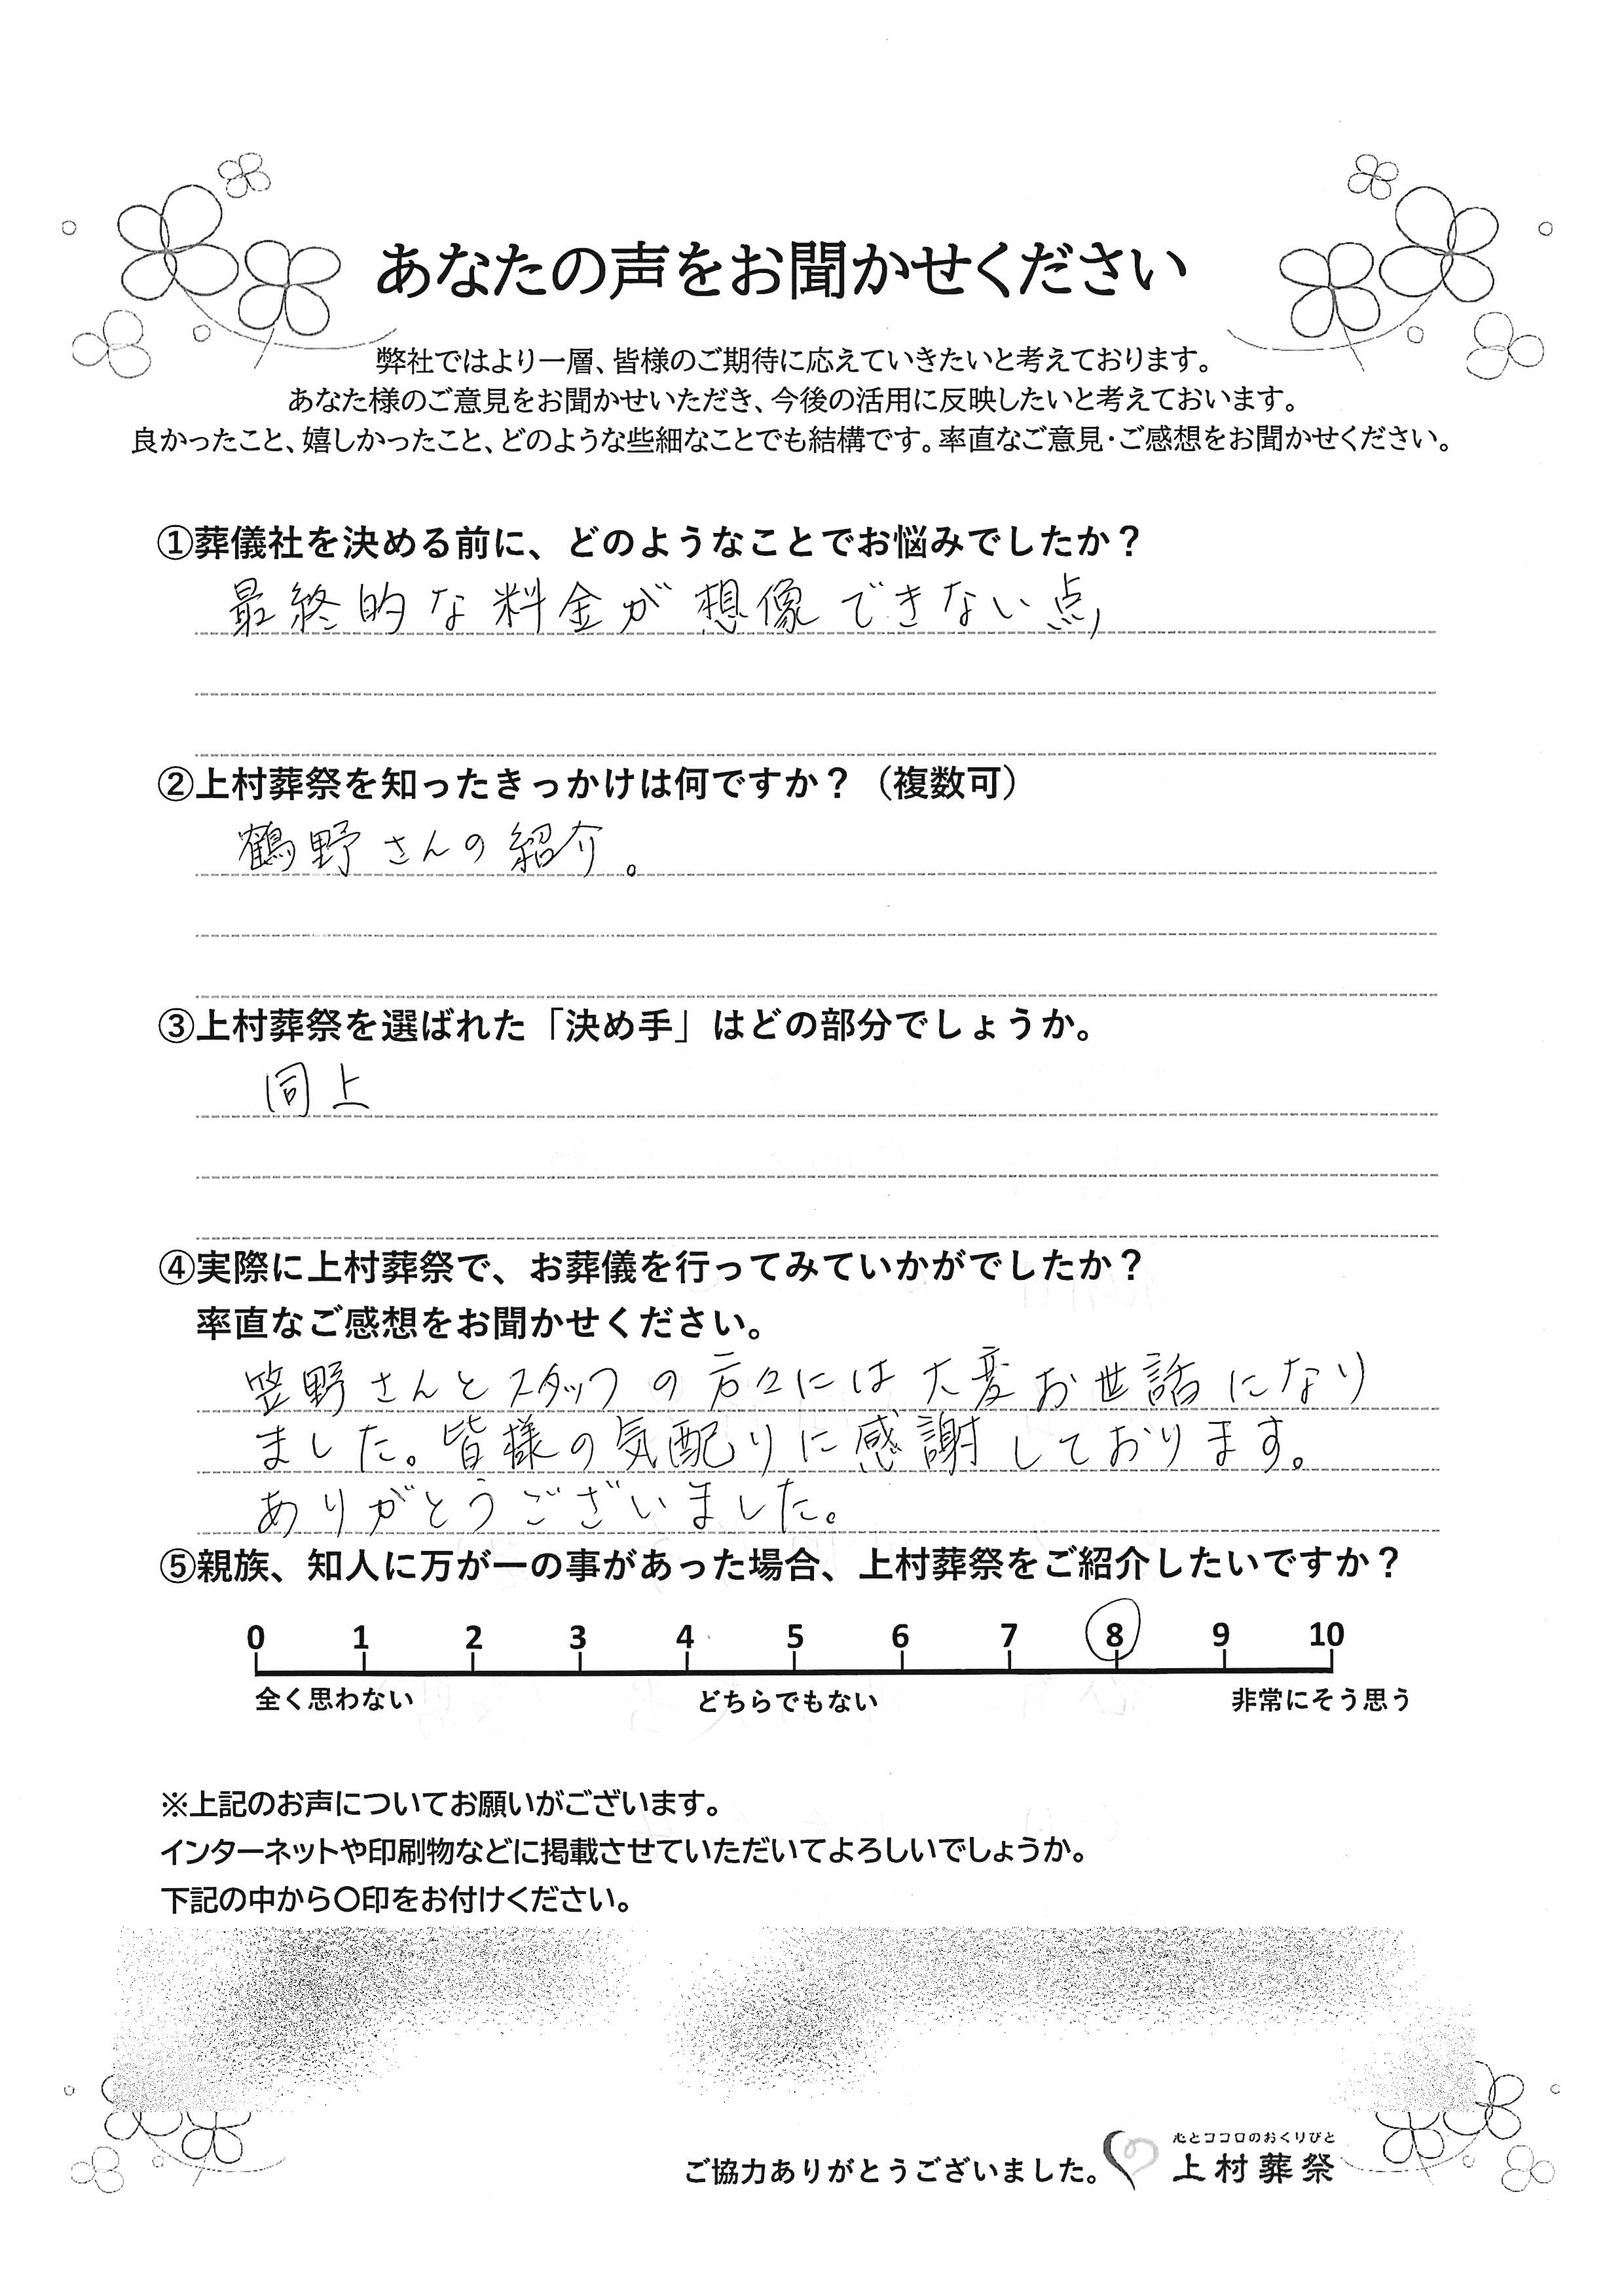 あなたの声をお聞かせください
弊社ではより一層、皆様のご期待に応えていきたいと考えております。
あなた様のご意見をお聞かせいただき、今後の活用に反映したいと考えておいます。
良かったこと、嬉しかったこと、どのような些細なことでも結構です。率直なご意見・ご感想をお聞かせください。
①葬儀社を決める前に、どのようなことでお悩みでしたか？
最終的な料金が想像できない点
②上村葬祭を知ったきっかけは何ですか？（複数可）
鶴野さんの紹介。
③上村葬祭を選ばれた「決め手」はどの部分でしょうか。
同上
④実際に上村葬祭で、お葬儀を行ってみていかがでしたか？
率直なご感想をお聞かせください。
笠野さんとスタッフの方々には大変お世話になり
ました。皆様の気配りに感謝しております。
ありがとうございました。
⑤親族、知人に万が一の事があった場合、上村葬祭をご紹介したいですか？
0 1 2 3 4 5 6 7 8 9 10
全く思わない どちらでもない 非常にそう思う
※上記のお声についてお願いがございます。
インターネットや印刷物などに掲載させていただいてよろしいでしょうか。
下記の中から〇印をお付けください。
心とココロのおくりびと
ご協力ありがとうございました。 上村葬祭